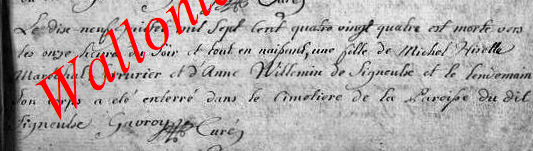 Curé
Le dise neuf mil Sept Cent quatre vingt quatre est morte vers
les onze heures du Soir et tout en naissant, une fille de Michel
Marechal Serrurier et d'Anne Willemin de Signeulx et le lendemain
Son corps a eté enterré dans le Cimetiere de la Paroisse du dit
Signeulx Gavroy Curé
Wallonie